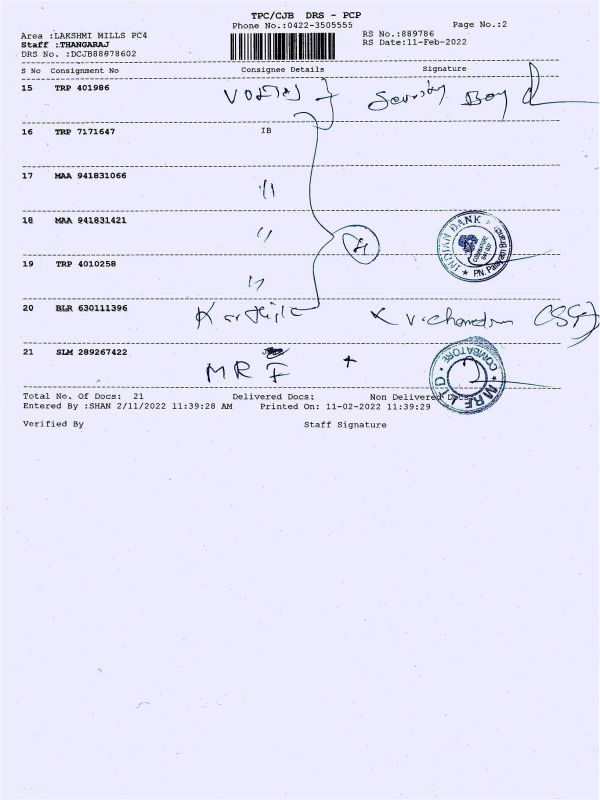 TPC/CJB DRS - PCP
Phone No.:0422-3505555
Page No.:2
Area :LAKSHMI MILLS PC4
RS No.:889786
Staff :THANGARAJ
RS Date:11-Feb-2022
DRS No. :DCJB88978602
S No Consignment No Consignee Details Signature
15 TRP 401986
16 TRP 7171647 IB
17 MAA 941831066 "
18 MAA 941831421 "
INDIAN BANK
19 TRP 4010258 "
20 BLR 630111396
21 SLM 289267422
MRF
COIMBATORE
MRF LTD
Total No. Of Docs: 21 Delivered Docs: Non Delivered Docs:
Entered By :SHAN 2/11/2022 11:39:28 AM Printed On: 11-02-2022 11:39:29
Verified By Staff Signature